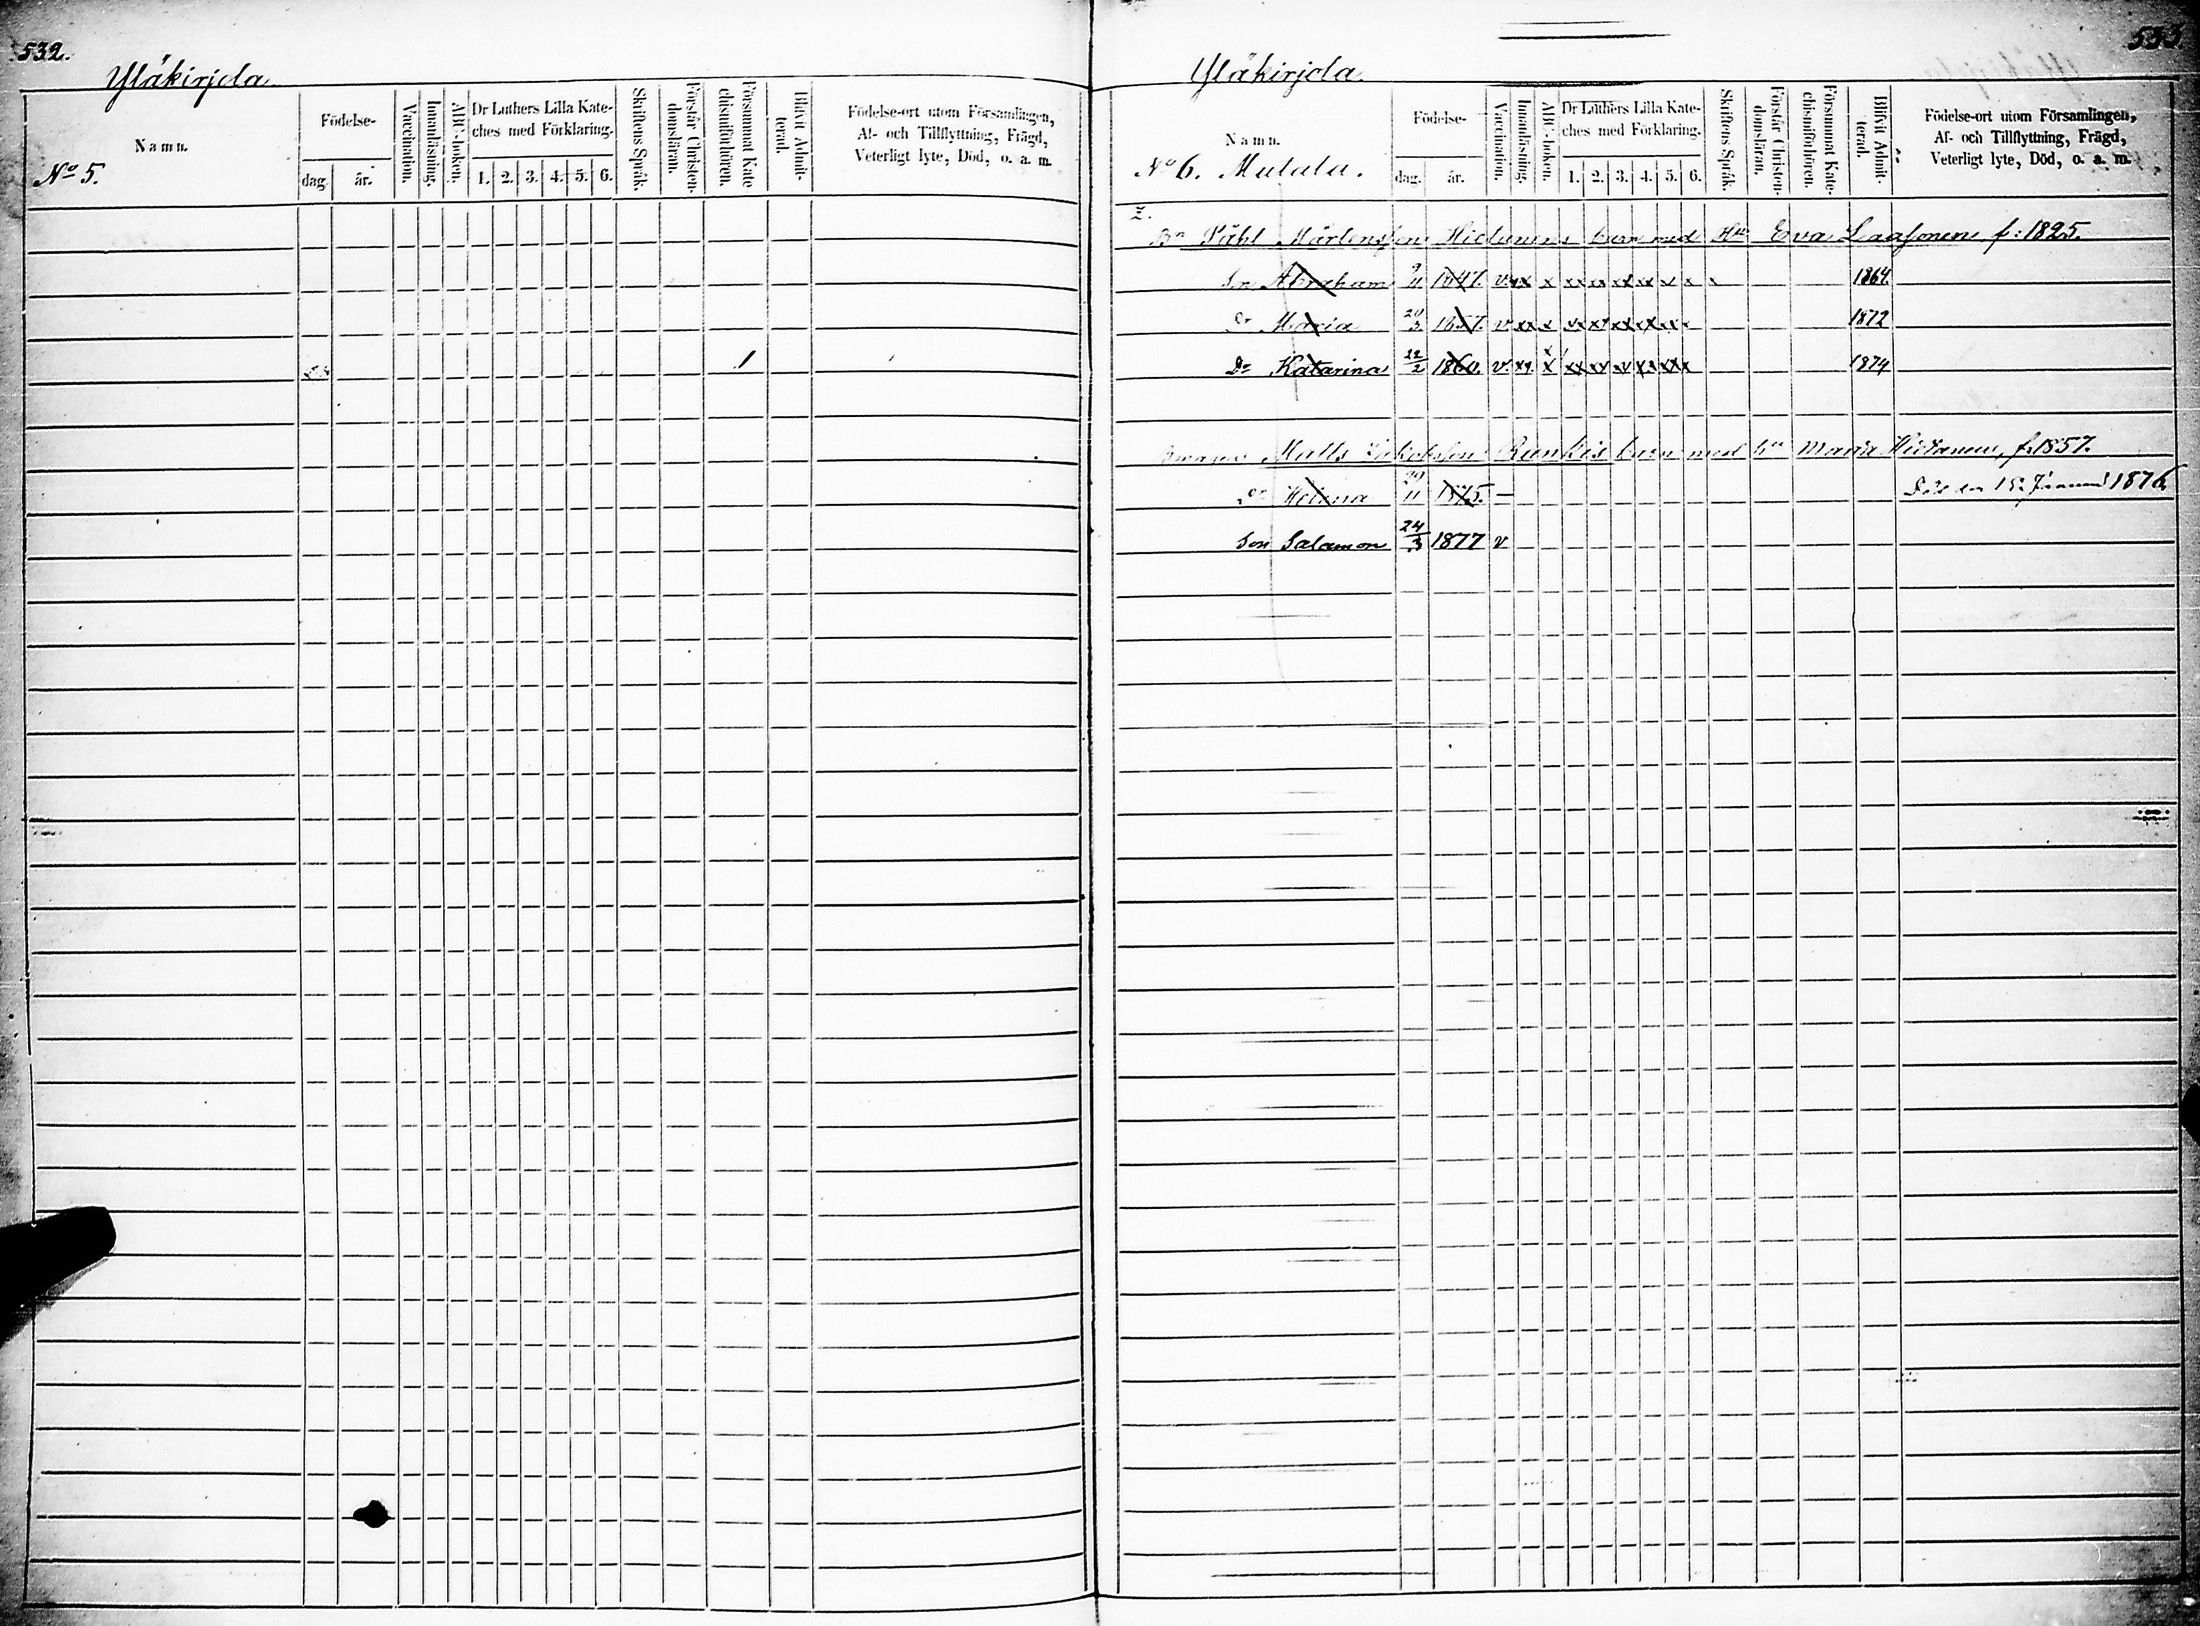 532.
Yläkirjola
Namn.
No 5.
Födelse-
dag.
år.
Vaccination.
Innanläsning.
ABC-boken.
Dr Luthers Lilla Kate-
ches med Förklaring.
1. 2. 3. 4. 5. 6.
Skriftens Språk.
Förstår Christen-
domsläran.
Försummat Kate
chismiförhören.
Blifvit Admit-
terad.
Födelse-ort utom Församlingen,
Af- och Tillflyttning, Frägd,
Veterligt lyte, Död, o. a. m.
533
Yläkirjola
Namn.
No 6. Mulala.
Födelse-
dag.
år.
Vaccination.
Innanläsning.
ABC-boken.
Dr Luthers Lilla Kate-
ches med Förklaring.
1. 2. 3. 4. 5. 6.
Skriftens Språk.
Förstår Christen-
domsläran.
Försummat Kate-
chismiförhören.
Blifvit Admit-
terad.
Födelse-ort utom Församlingen,
Af- och Tillflyttning, Frägd,
Veterligt lyte, Död, o. a. m.
Påhl Mårtensson Hietanens barn med Eva Laasonen f: 1825.
Son Abraham 9/11 1847. v xx x xx xx xx xx x x x 1864
Dr Maria 1857. v xx x xx xx xx xx xx 1872
Dr Katarina 22/2 1860. v xx x xx xx xx xx xx 1874
Matts Jakobsson Runkis barn med Maria Hietanen, f. 1857.
Dr Helena 29/11 1875. — Död den 15 Januari 1876
Son Salamon 24/3 1877 v